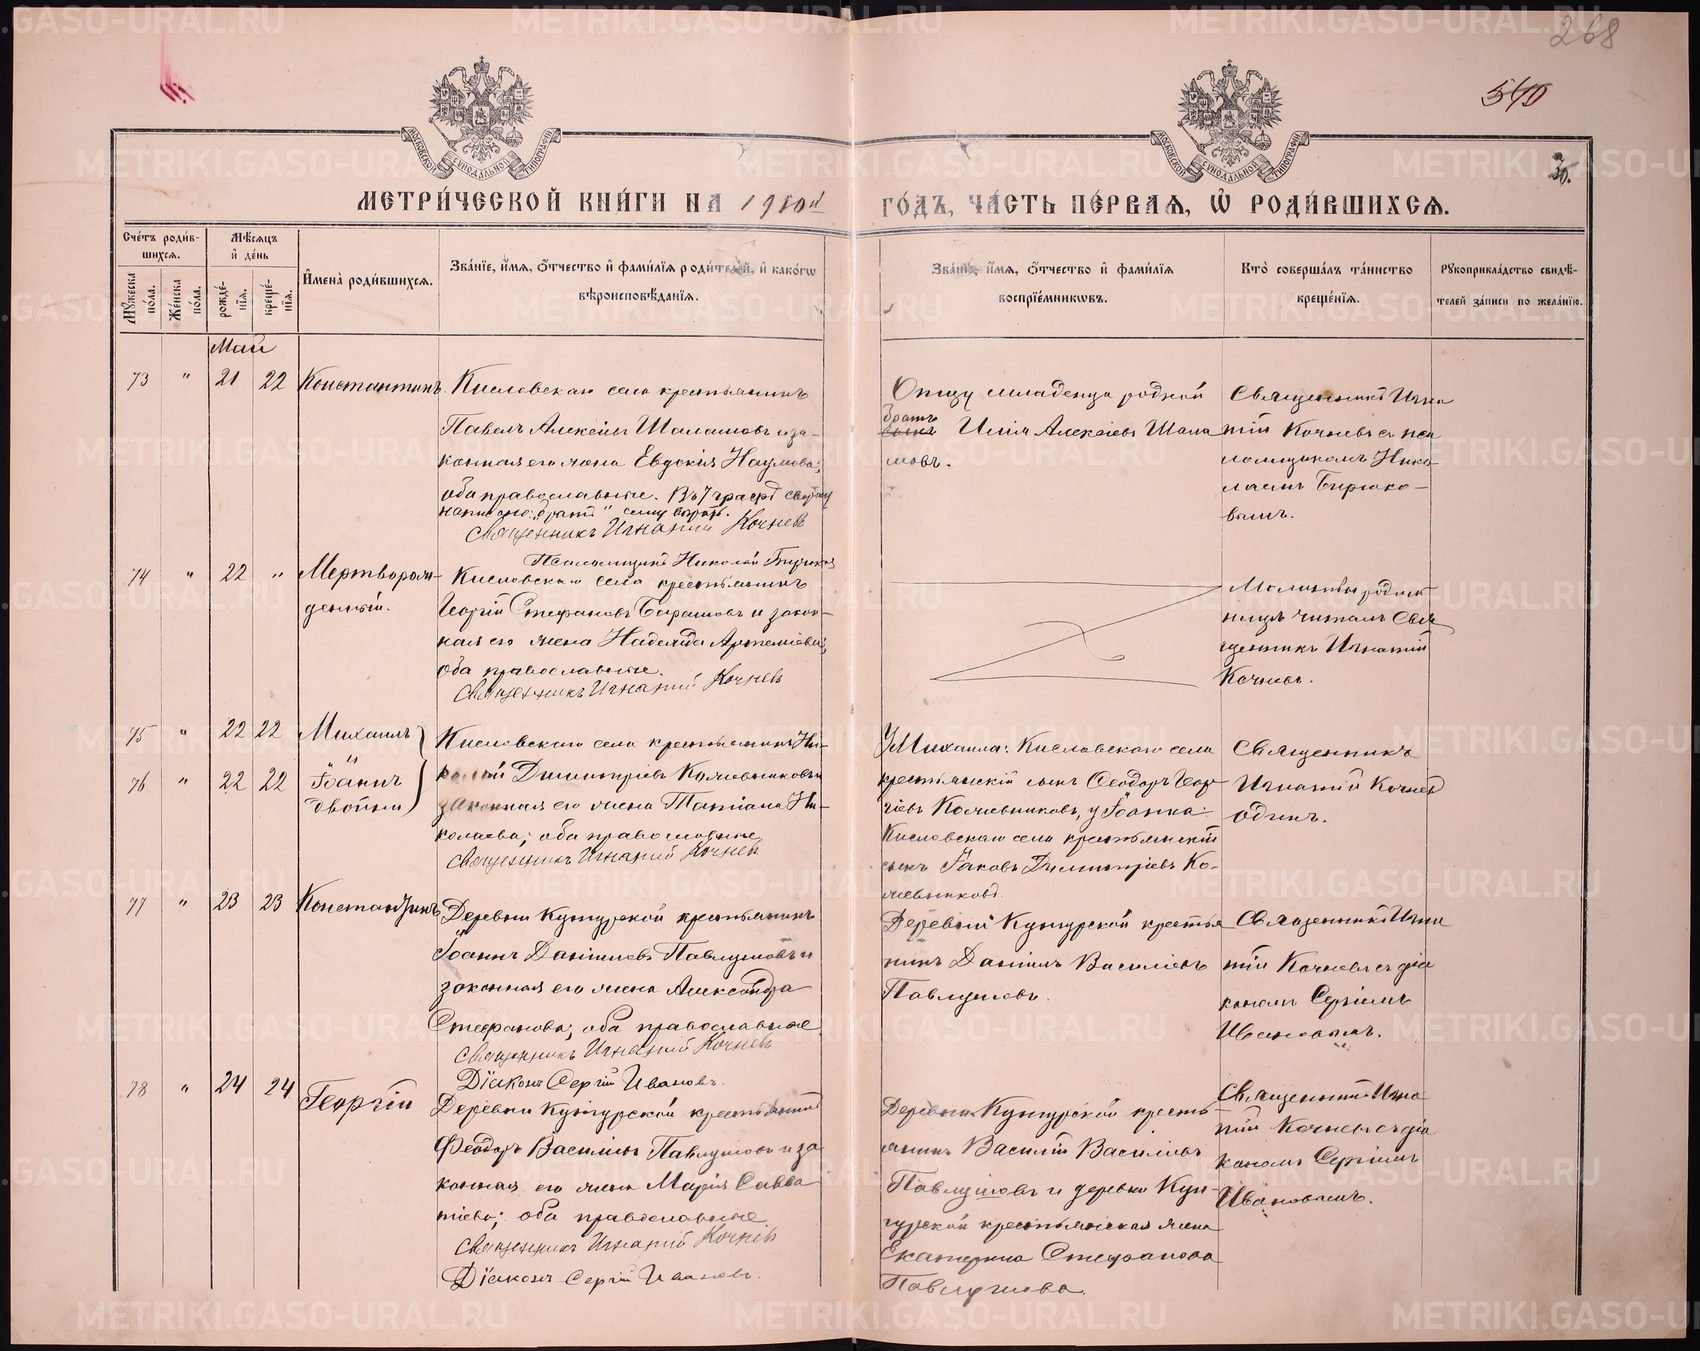 268
540
35.
МОСКОВСКОЙ СѴНОДАЛЬНОЙ ТИПОГРАФІИ
МОСКОВСКОЙ СѴНОДАЛЬНОЙ ТИПОГРАФІИ
МЕТРИ́ЧЕСКОЙ КНИ́ГИ НА 1910й ГО́ДЪ, ЧА́СТЬ ПЕ́РВАЯ, Ѡ҆ РОДИ́ВШИХСЯ.
Сче́тъ роди́в-
шихся.
Мꙋ́жеска по́ла.
Же́нска по́ла.
Мѣ́сяцъ и҆ де́нь
рожде́-нїя.
креще́-нїя.
И҆мена̀ роди́вшихся.
Зва́нїе, и҆́мя, ѻ҆́тчество и҆ фами́лїя роди́телей, и҆ како́гѡ
вѣроисповѣ́данїя.
Зва́нїе, и҆́мя, ѻ҆́тчество и҆ фами́лїя
воспрїе́мниковъ.
Кто̀ соверша́лъ та́инство
креще́нїя.
Рꙋкоприкла́дство свидѣ́-
телей за́писи по жела́нїю.
Май
73 " 21 22 Константинъ
Кисловскаго села крестьянинъ
Павелъ Алексѣевъ Шаламовъ и за-
конная его жена Евдокія Наумова;
оба православные. Въ 7 графѣ
написано: „братъ" сему вѣрить.
Священникъ Игнатій Кочневъ
Псаломщикъ Николай Бирюковъ
Отцу младенца родной
братъ
сынъ Илія Алексѣевъ Шала
мовъ.
Священникъ Игна
тій Кочневъ съ пса
ломщикомъ Нико-
лаемъ Бирюко-
вымъ.
74 " 22 " Мертворож-
денный.
Кисловскаго села крестьянинъ
Георгій Стефановъ Барашовъ и закон-
ная его жена Надежда Артеміева;
оба православные.
Священникъ Игнатій Кочневъ
Молитвы родиль
ницѣ читалъ Свя
щенникъ Игнатій
Кочневъ.
75 " 22 22 Михаилъ
"
76 " 22 22 Іоаннъ
двойни
Кисловскаго села крестьянинъ Ни-
колай Димитріевъ Кожевниковъ и
законная его жена Татіана Ни-
колаева; оба православные
Священникъ Игнатій Кочневъ
У Михаила: Кисловскаго села
крестьянскій сынъ Ѳеодоръ Геор
гіевъ Кожевниковъ, у Іоанна:
Кисловскаго села крестьянскій
сынъ Іаковъ Димитріевъ Ко-
жевниковъ
Священникъ
Игнатій Кочневъ
одинъ.
77 " 23 23 Константинъ
Деревни Кунгурской крестьянинъ
Іоаннъ Даніиловъ Павлушовъ и
законная его жена Александра
Стефанова; оба православные
Священникъ Игнатій Кочневъ
Діаконъ Сергій Ивановъ.
Деревни Кунгурской крестья
нинъ Даніилъ Василіевъ
Павлушовъ.
Священникъ Игна
тій Кочневъ съ діа
кономъ Сергіемъ
Ивановымъ.
78 " 24 24 Георгій
Деревни Кунгурской крестьянинъ
Ѳеодоръ Василіевъ Павлушовъ и за
конная его жена Марія Савва
тіева; оба православные.
Священникъ Игнатій Кочневъ
Діаконъ Сергій Ивановъ.
Деревни Кунгурской кресть
янинъ Василій Василіевъ
Павлушовъ и деревни Кун-
гурской крестьянская жена
Екатерина Стефанова
Павлушова.
Священникъ Игна
тій Кочневъ съ діа
кономъ Сергіемъ
Ивановымъ.
METRIKI.GASO-URAL.RU